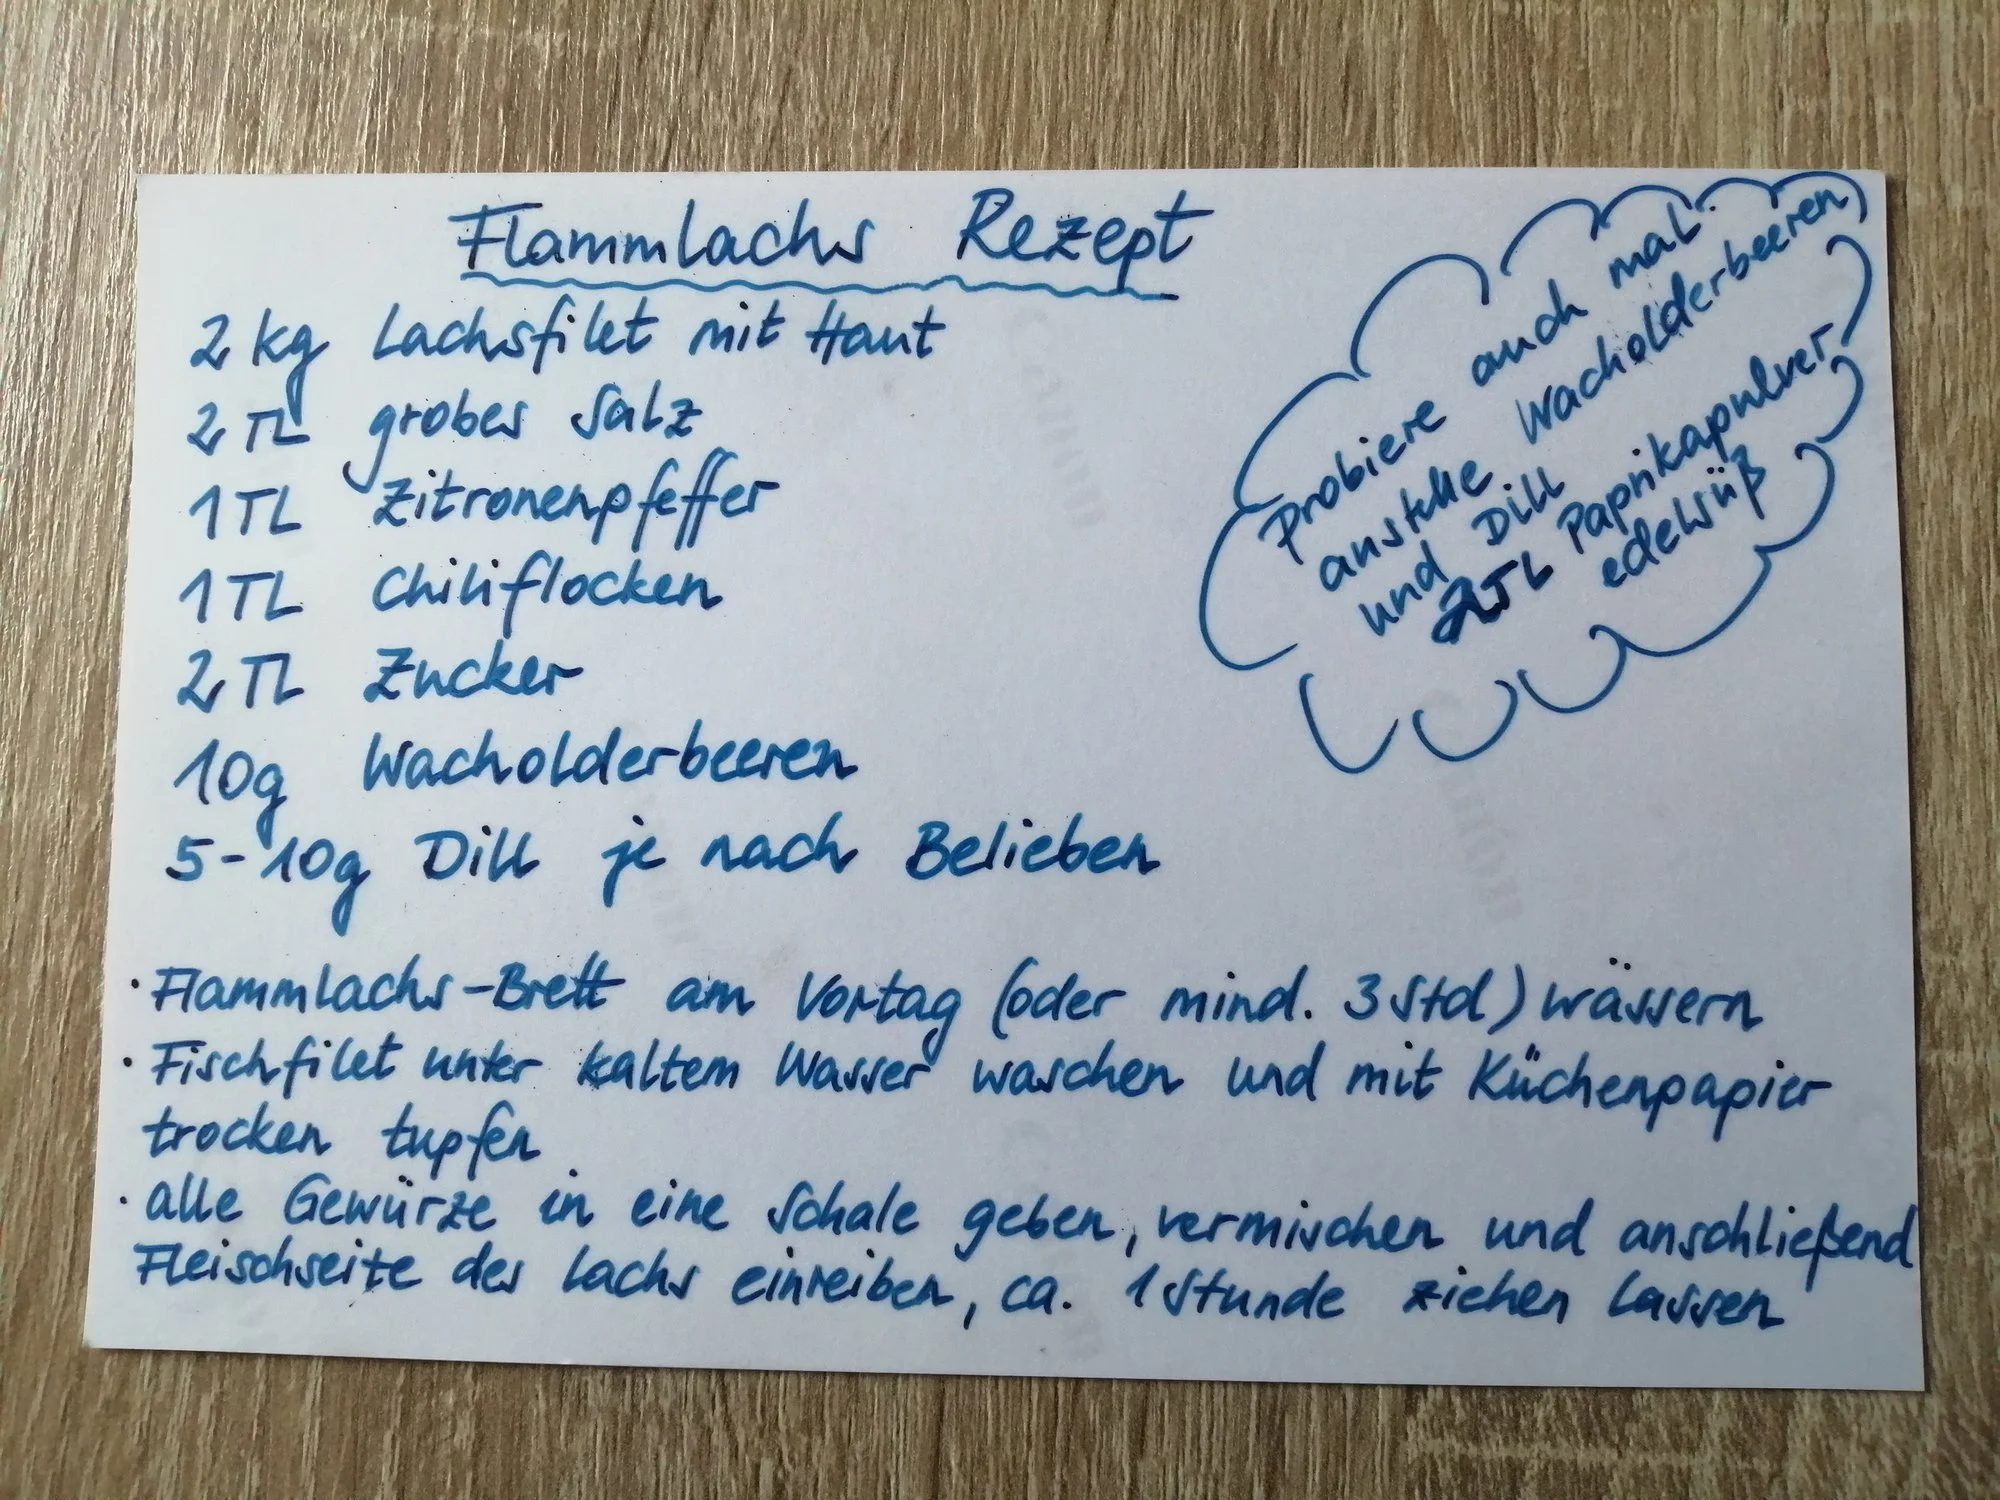 Flammlachs Rezept
2 kg Lachsfilet mit Haut
2 TL grobes Salz
1 TL Zitronenpfeffer
1 TL Chiliflocken
2 TL Zucker
10g Wacholderbeeren
5-10g Dill je nach Belieben
Probiere auch mal
anstelle Wacholderbeeren
und Dill
2TL Paprikapulver
edelsüß
· Flammlachs-Brett am Vortag (oder mind. 3 Std) wässern
· Fischfilet unter kaltem Wasser waschen und mit Küchenpapier
trocken tupfen
· alle Gewürze in eine Schale geben, vermischen und anschließend
Fleischseite des Lachs einreiben, ca. 1 Stunde ziehen lassen